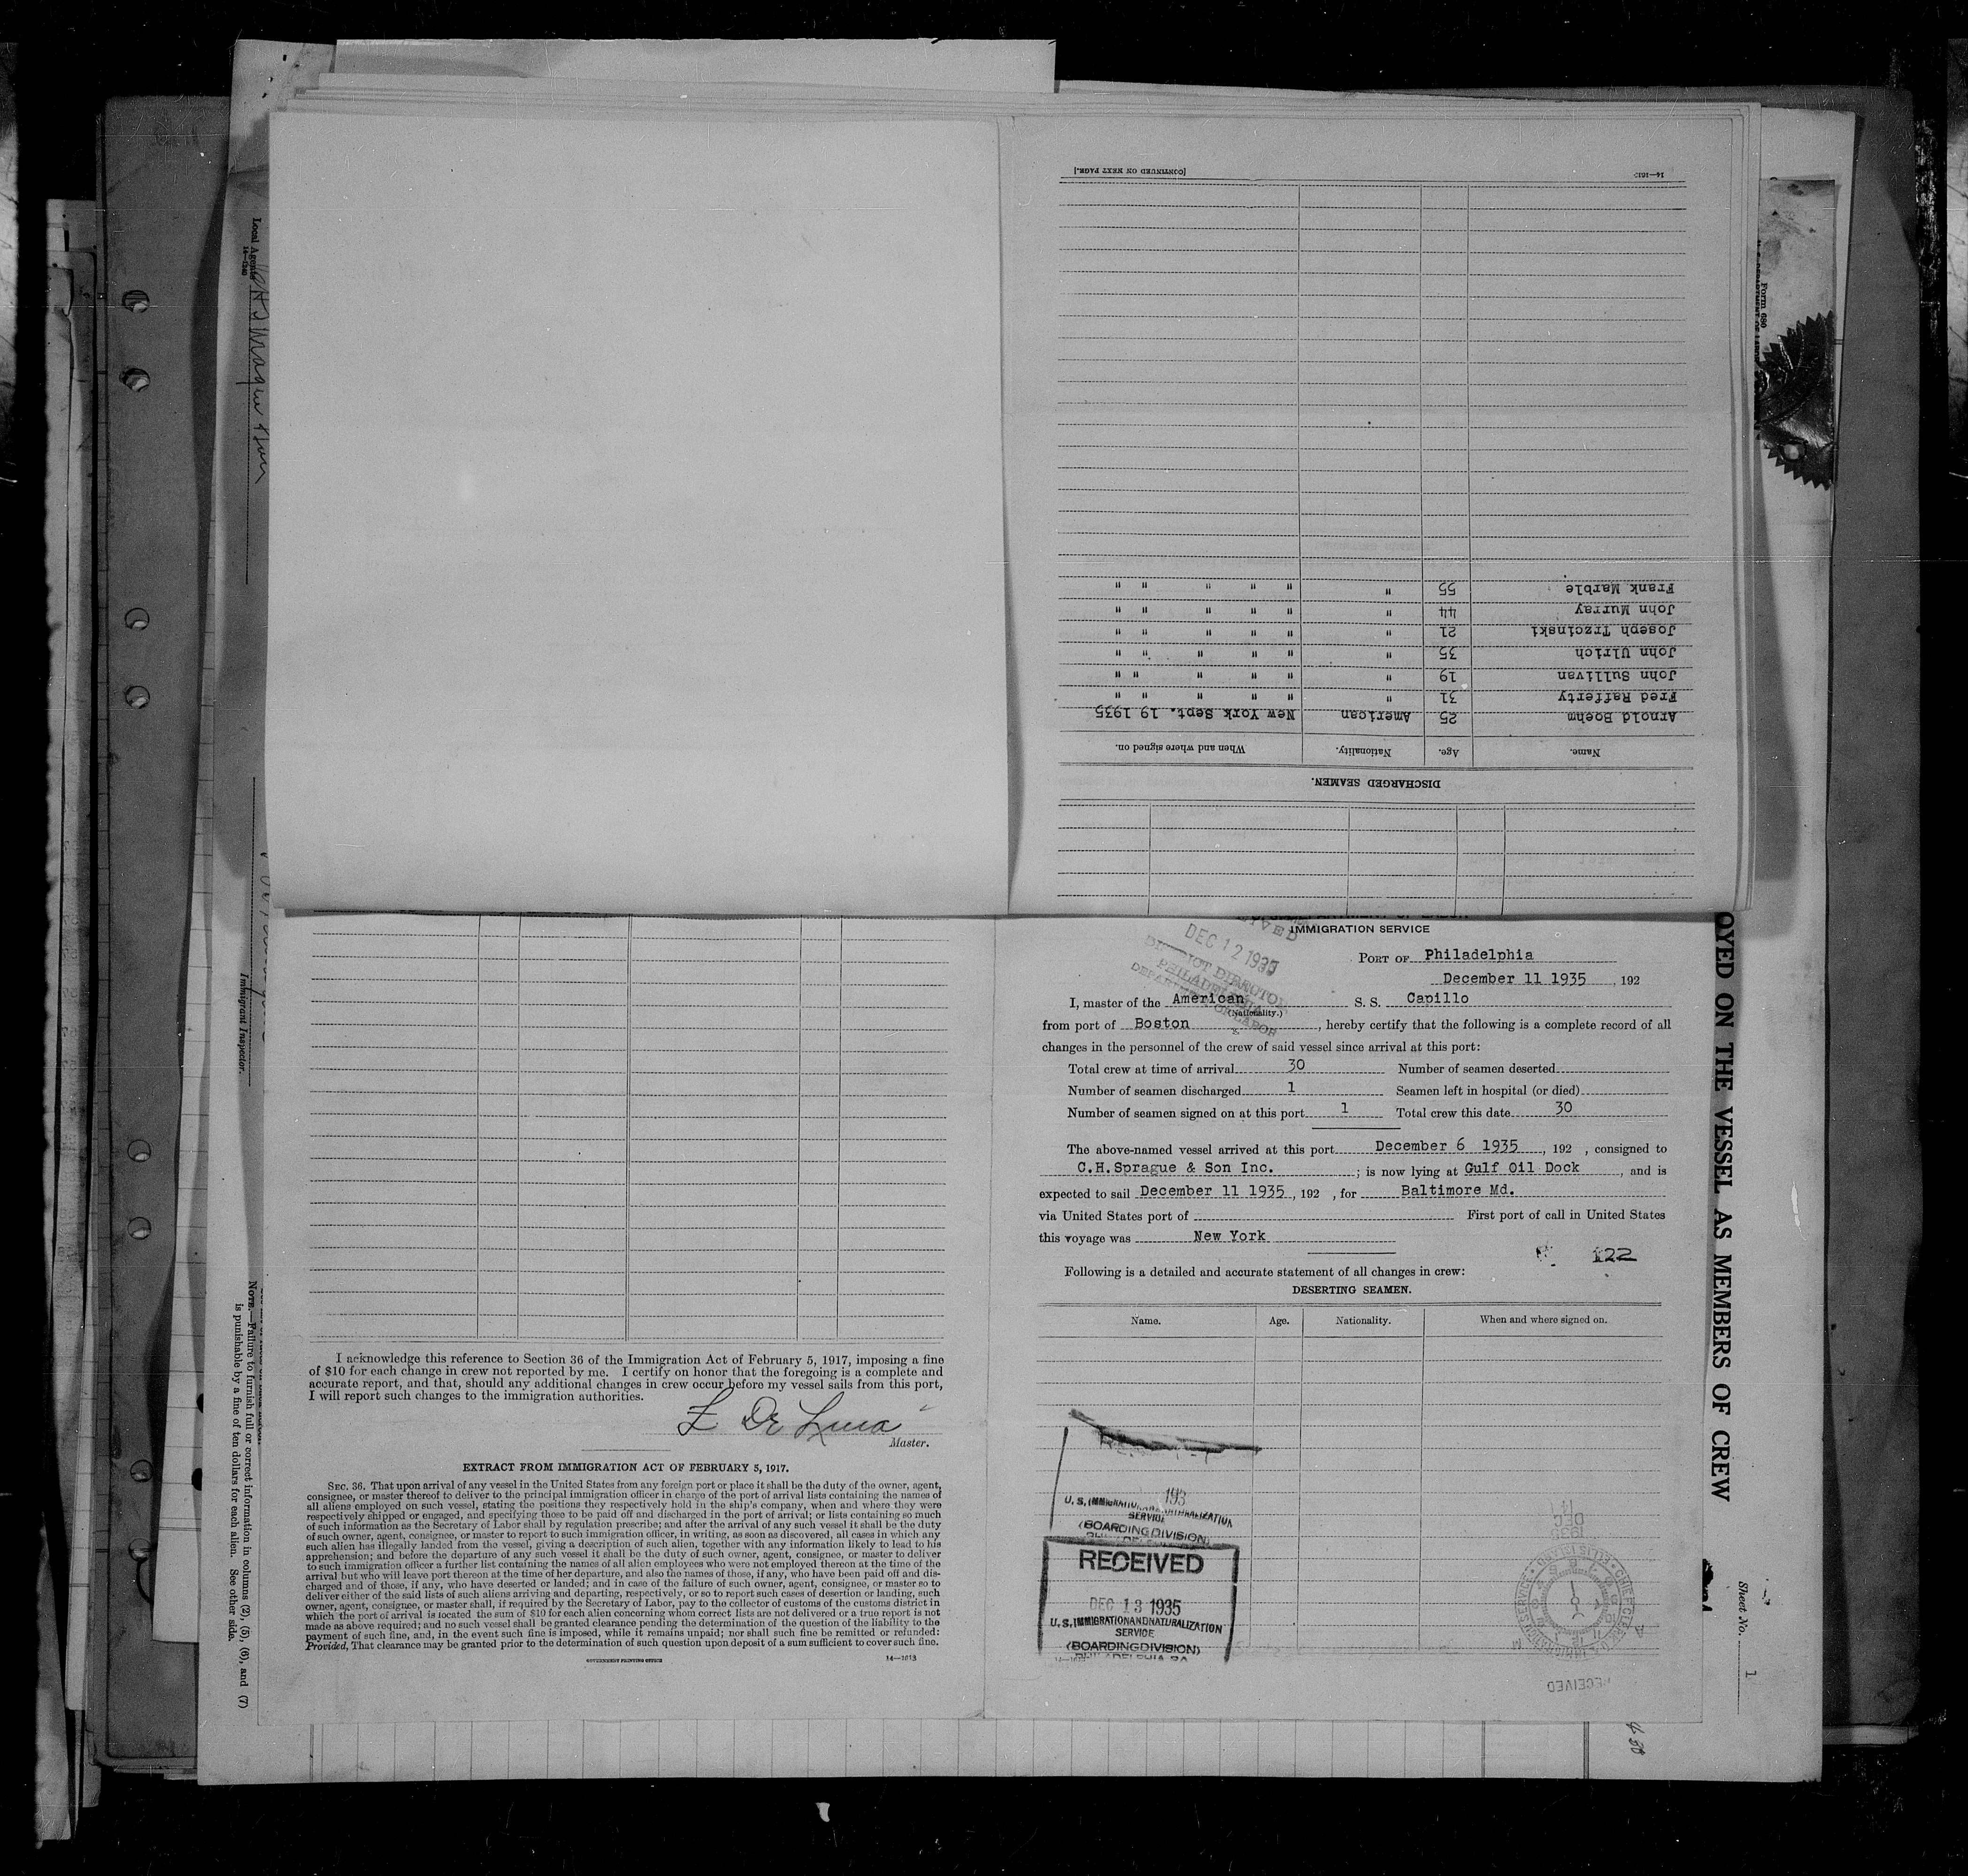 [CONTINUED ON NEXT PAGE.]
DISCHARGED SEAMEN.
Name. Age. Nationality. When and where signed on.
Arnold Boehm 25 American New York Sept. 19 1935
Fred Rafferty 31 " " " " " "
John Sullivan 19 " " " " " "
John Ulrich 35 " " " " " "
Joseph Trzcinski 21 " " " " " "
John Murray 44 " " " " " "
Frank Marble 55 " " " " " "
IMMIGRATION SERVICE
PORT OF Philadelphia
December 11 1935, 192
I, master of the American S. S. Capillo
(Nationality.)
from port of Boston, hereby certify that the following is a complete record of all
changes in the personnel of the crew of said vessel since arrival at this port:
Total crew at time of arrival 30 Number of seamen deserted
Number of seamen discharged 1 Seamen left in hospital (or died)
Number of seamen signed on at this port 1 Total crew this date 30
The above-named vessel arrived at this port December 6 1935, 192 , consigned to
C.H.Sprague & Son Inc. ; is now lying at Gulf Oil Dock, and is
expected to sail December 11 1935, 192 , for Baltimore Md.
via United States port of First port of call in United States
this voyage was New York
122
Following is a detailed and accurate statement of all changes in crew:
DESERTING SEAMEN.
Name. Age. Nationality. When and where signed on.
DEC 12 1935
193
U.S. IMMIGRATION AND NATURALIZATION
SERVICE
(BOARDING DIVISION)
RECEIVED
DEC 13 1935
U.S. IMMIGRATION AND NATURALIZATION
SERVICE
(BOARDING DIVISION)
PHILADELPHIA PA
14 DEC 1935
ELLIS ISLAND
RECEIVED
I acknowledge this reference to Section 36 of the Immigration Act of February 5, 1917, imposing a fine
of $10 for each change in crew not reported by me. I certify on honor that the foregoing is a complete and
accurate report, and that, should any additional changes in crew occur before my vessel sails from this port,
I will report such changes to the immigration authorities.
L De Luca
Master.
EXTRACT FROM IMMIGRATION ACT OF FEBRUARY 5, 1917.
SEC. 36. That upon arrival of any vessel in the United States from any foreign port or place it shall be the duty of the owner, agent,
consignee, or master thereof to deliver to the principal immigration officer in charge of the port of arrival lists containing the names of
all aliens employed on such vessel, stating the positions they respectively hold in the ship's company, when and where they were
respectively shipped or engaged, and specifying those to be paid off and discharged in the port of arrival; or lists containing so much
of such information as the Secretary of Labor shall by regulation prescribe; and after the arrival of any such vessel it shall be the duty
of such owner, agent, consignee, or master to report to such immigration officer, in writing, as soon as discovered, all cases in which any
such alien has illegally landed from the vessel, giving a description of such alien, together with any information likely to lead to his
apprehension; and before the departure of any such vessel it shall be the duty of such owner, agent, consignee, or master to deliver
to such immigration officer a further list containing the names of all alien employees who were not employed thereon at the time of the
arrival but who will leave port thereon at the time of her departure, and also the names of those, if any, who have been paid off and dis-
charged and of those, if any, who have deserted or landed; and in case of the failure of such owner, agent, consignee, or master so to
deliver either of the said lists of such aliens arriving and departing, respectively, or so to report such cases of desertion or landing, such
owner, agent, consignee, or master shall, if required by the Secretary of Labor, pay to the collector of customs of the customs district in
which the port of arrival is located the sum of $10 for each alien concerning whom correct lists are not delivered or a true report is not
made as above required; and no such vessel shall be granted clearance pending the determination of the question of the liability to the
payment of such fine, and, in the event such fine is imposed, while it remains unpaid; nor shall such fine be remitted or refunded:
Provided, That clearance may be granted prior to the determination of such question upon deposit of a sum sufficient to cover such fine.
GOVERNMENT PRINTING OFFICE 14—1613
OYED ON THE VESSEL AS MEMBERS OF CREW
Sheet No. 1
Form 680
Local Agents
14—1240
Immigrant Inspector.
NOTE.—Failure to furnish full or correct information in columns (2), (5), (6), and (7)
is punishable by a fine of ten dollars for each alien. See other side.